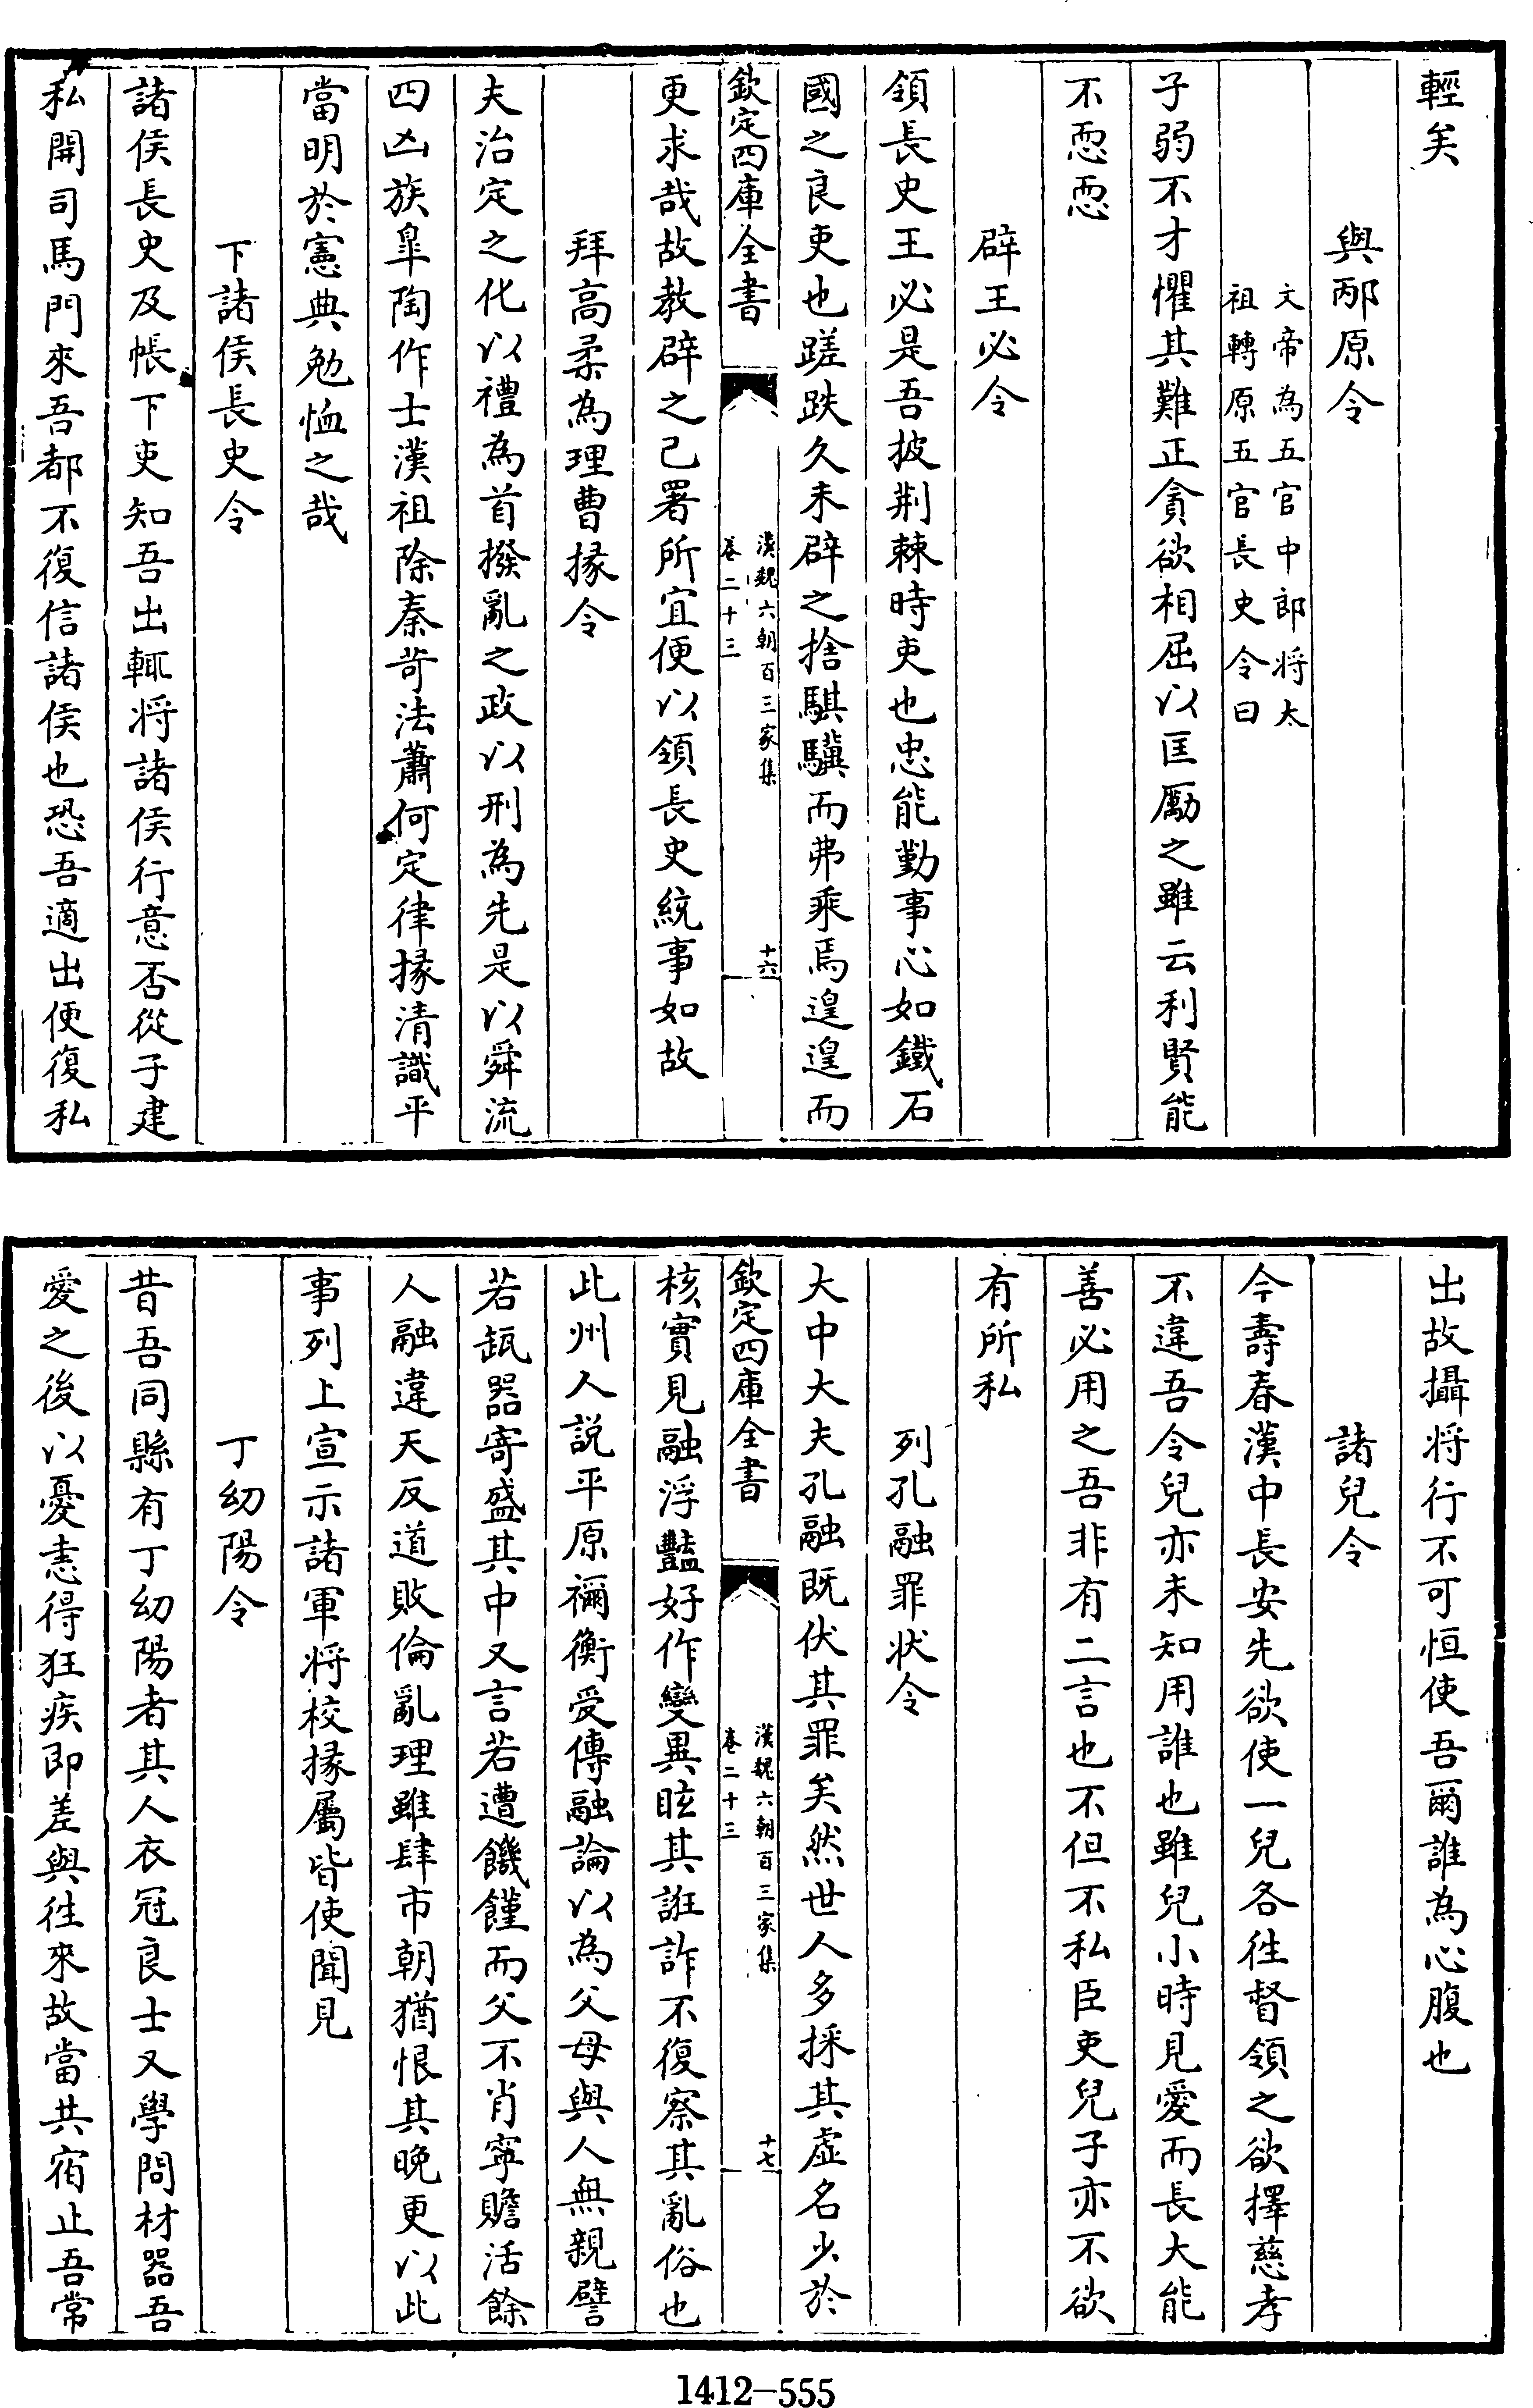 輕矣
與邴原令
文帝為五官中郎將太
祖轉原五官長史令曰
子弱不才懼其難正貪欲相屈以匡勵之雖云利賢能
不恧恧
辟王必令
領長史王必是吾披荆棘時吏也忠能勤事心如鐵石
國之良吏也蹉跌久未辟之捨騏驥而弗乘焉遑遑而
欽定四庫全書
漢魏六朝百三家集
卷二十三
十六
更求哉故教辟之已署所宜便以領長史統事如故
拜高柔為理曹掾令
夫治定之化以禮為首撥亂之政以刑為先是以舜流
四凶族臯陶作士漢祖除秦苛法蕭何定律掾清識平
當明於憲典勉恤之哉
下諸侯長史令
諸侯長史及帳下吏知吾出輒將諸侯行意否從子建
私開司馬門來吾都不復信諸侯也恐吾適出便復私
出故攝將行不可恒使吾爾誰為心腹也
諸兒令
今壽春漢中長安先欲使一兒各往督領之欲擇慈孝
不違吾令兒亦未知用誰也雖兒小時見愛而長大能
善必用之吾非有二言也不但不私臣吏兒子亦不欲
有所私
列孔融罪狀令
大中大夫孔融既伏其罪矣然世人多採其虛名少於
欽定四庫全書
漢魏六朝百三家集
卷二十三
十七
核實見融浮豔好作變異眩其誑詐不復察其亂俗也
此州人說平原禰衡受傳融論以為父母與人無親譬
若缻器寄盛其中又言若遭饑饉而父不肖寧贍活餘
人融違天反道敗倫亂理雖肆市朝猶恨其晚更以此
事列上宣示諸軍將校掾屬皆使聞見
丁幼陽令
昔吾同縣有丁幼陽者其人衣冠良士又學問材器吾
愛之後以憂恚得狂疾即差與往來故當共宿止吾常
1412-555